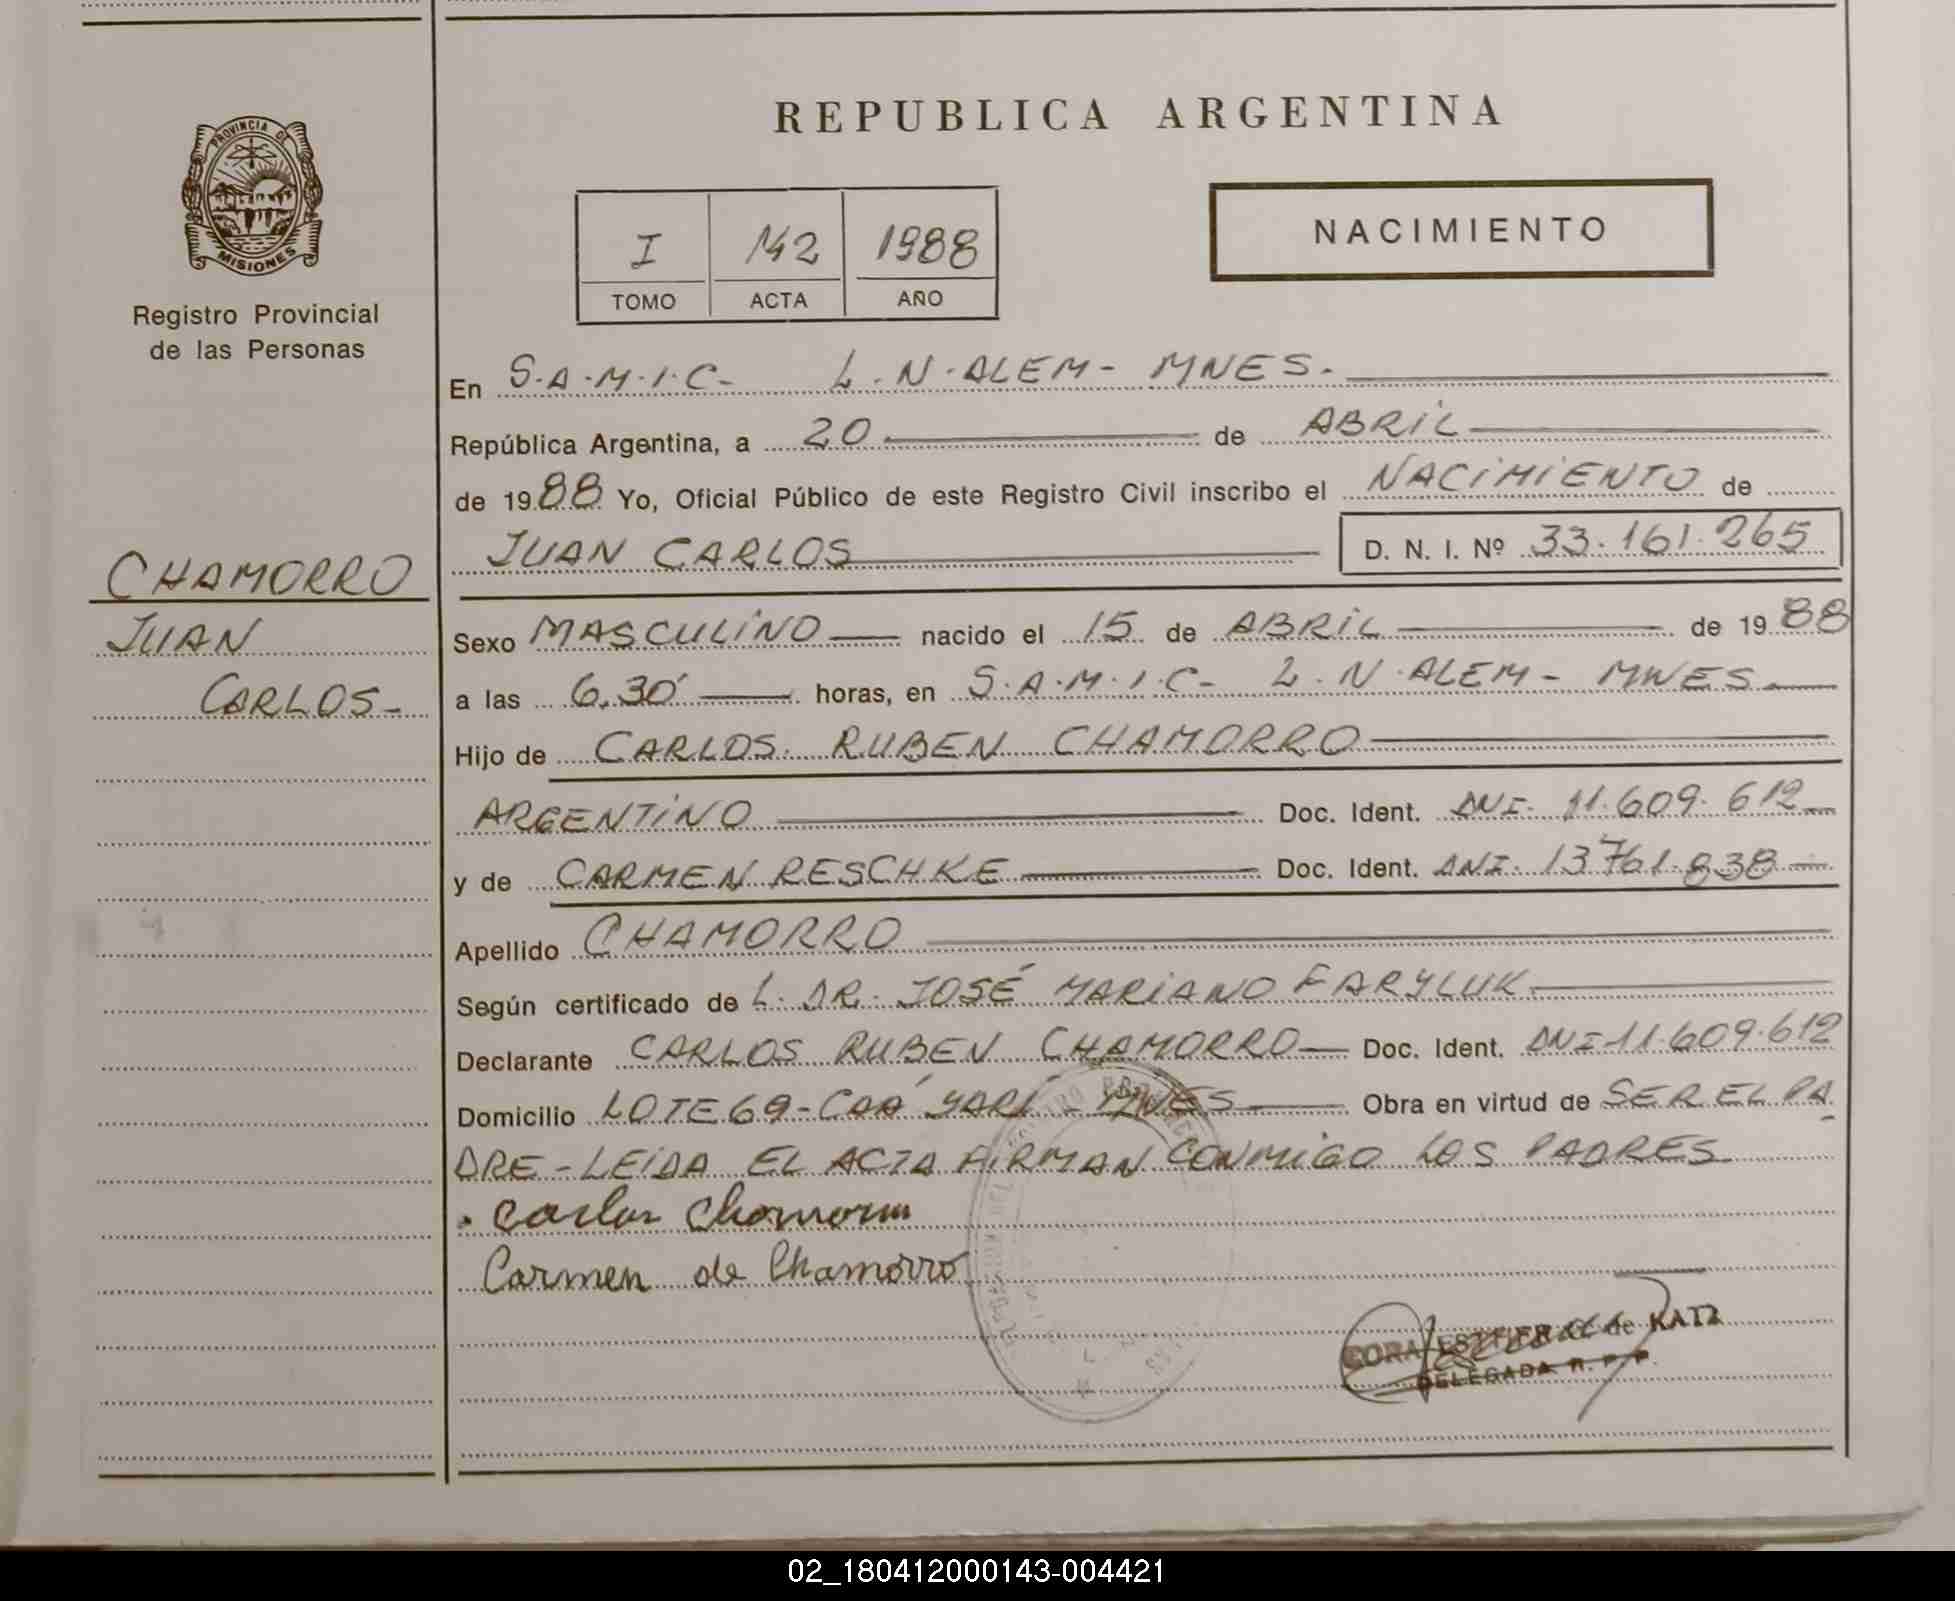 REPUBLICA ARGENTINA
PROVINCIA DE
MISIONES
Registro Provincial
de las Personas
I 142 1988
TOMO ACTA AÑO
NACIMIENTO
En S.A.M.I.C- L.N.ALEM- MNES.-
República Argentina, a 20 de ABRIL
de 1988 Yo, Oficial Público de este Registro Civil inscribo el NACIMIENTO de
JUAN CARLOS D. N. I. Nº 33.161.265
CHAMORRO
JUAN
CARLOS-
Sexo MASCULINO nacido el 15 de ABRIL de 1988
a las 6,30' horas, en S.A.M.I.C- L.N.ALEM- MNES.
Hijo de CARLOS RUBEN CHAMORRO
ARGENTINO Doc. Ident. DNI- 11.609.612
y de CARMEN RESCHKE Doc. Ident. DNI- 13761.838
Apellido CHAMORRO
Según certificado de L. DR. JOSÉ MARIANO FARYLUK
Declarante CARLOS RUBEN CHAMORRO Doc. Ident. DNI 11.609.612
Domicilio LOTE 69-CAÁ YARÍ - MNES Obra en virtud de SER EL PA
DRE-LEIDA EL ACTA FIRMAN CONMIGO LOS PADRES
Carlos Chamorro
Carmen de Chamorro
CORA ESTHER de KATZ
DELEGADA R. P. P.
02_180412000143-004421